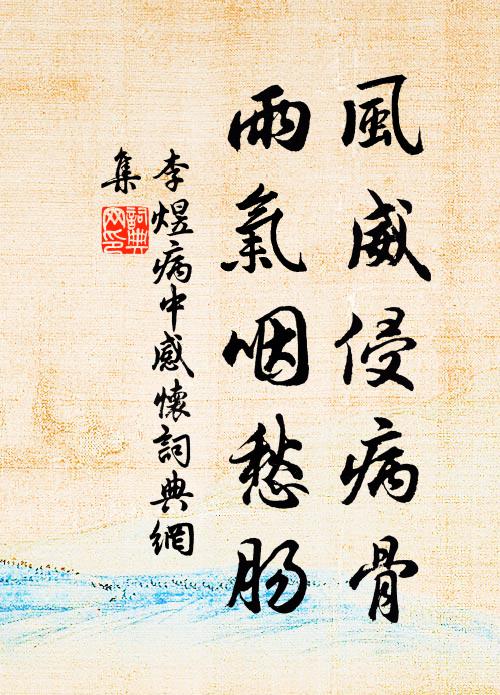 風威侵病骨
雨氣咽愁肠
李煜病中感懷詞典網
集
詞典网印